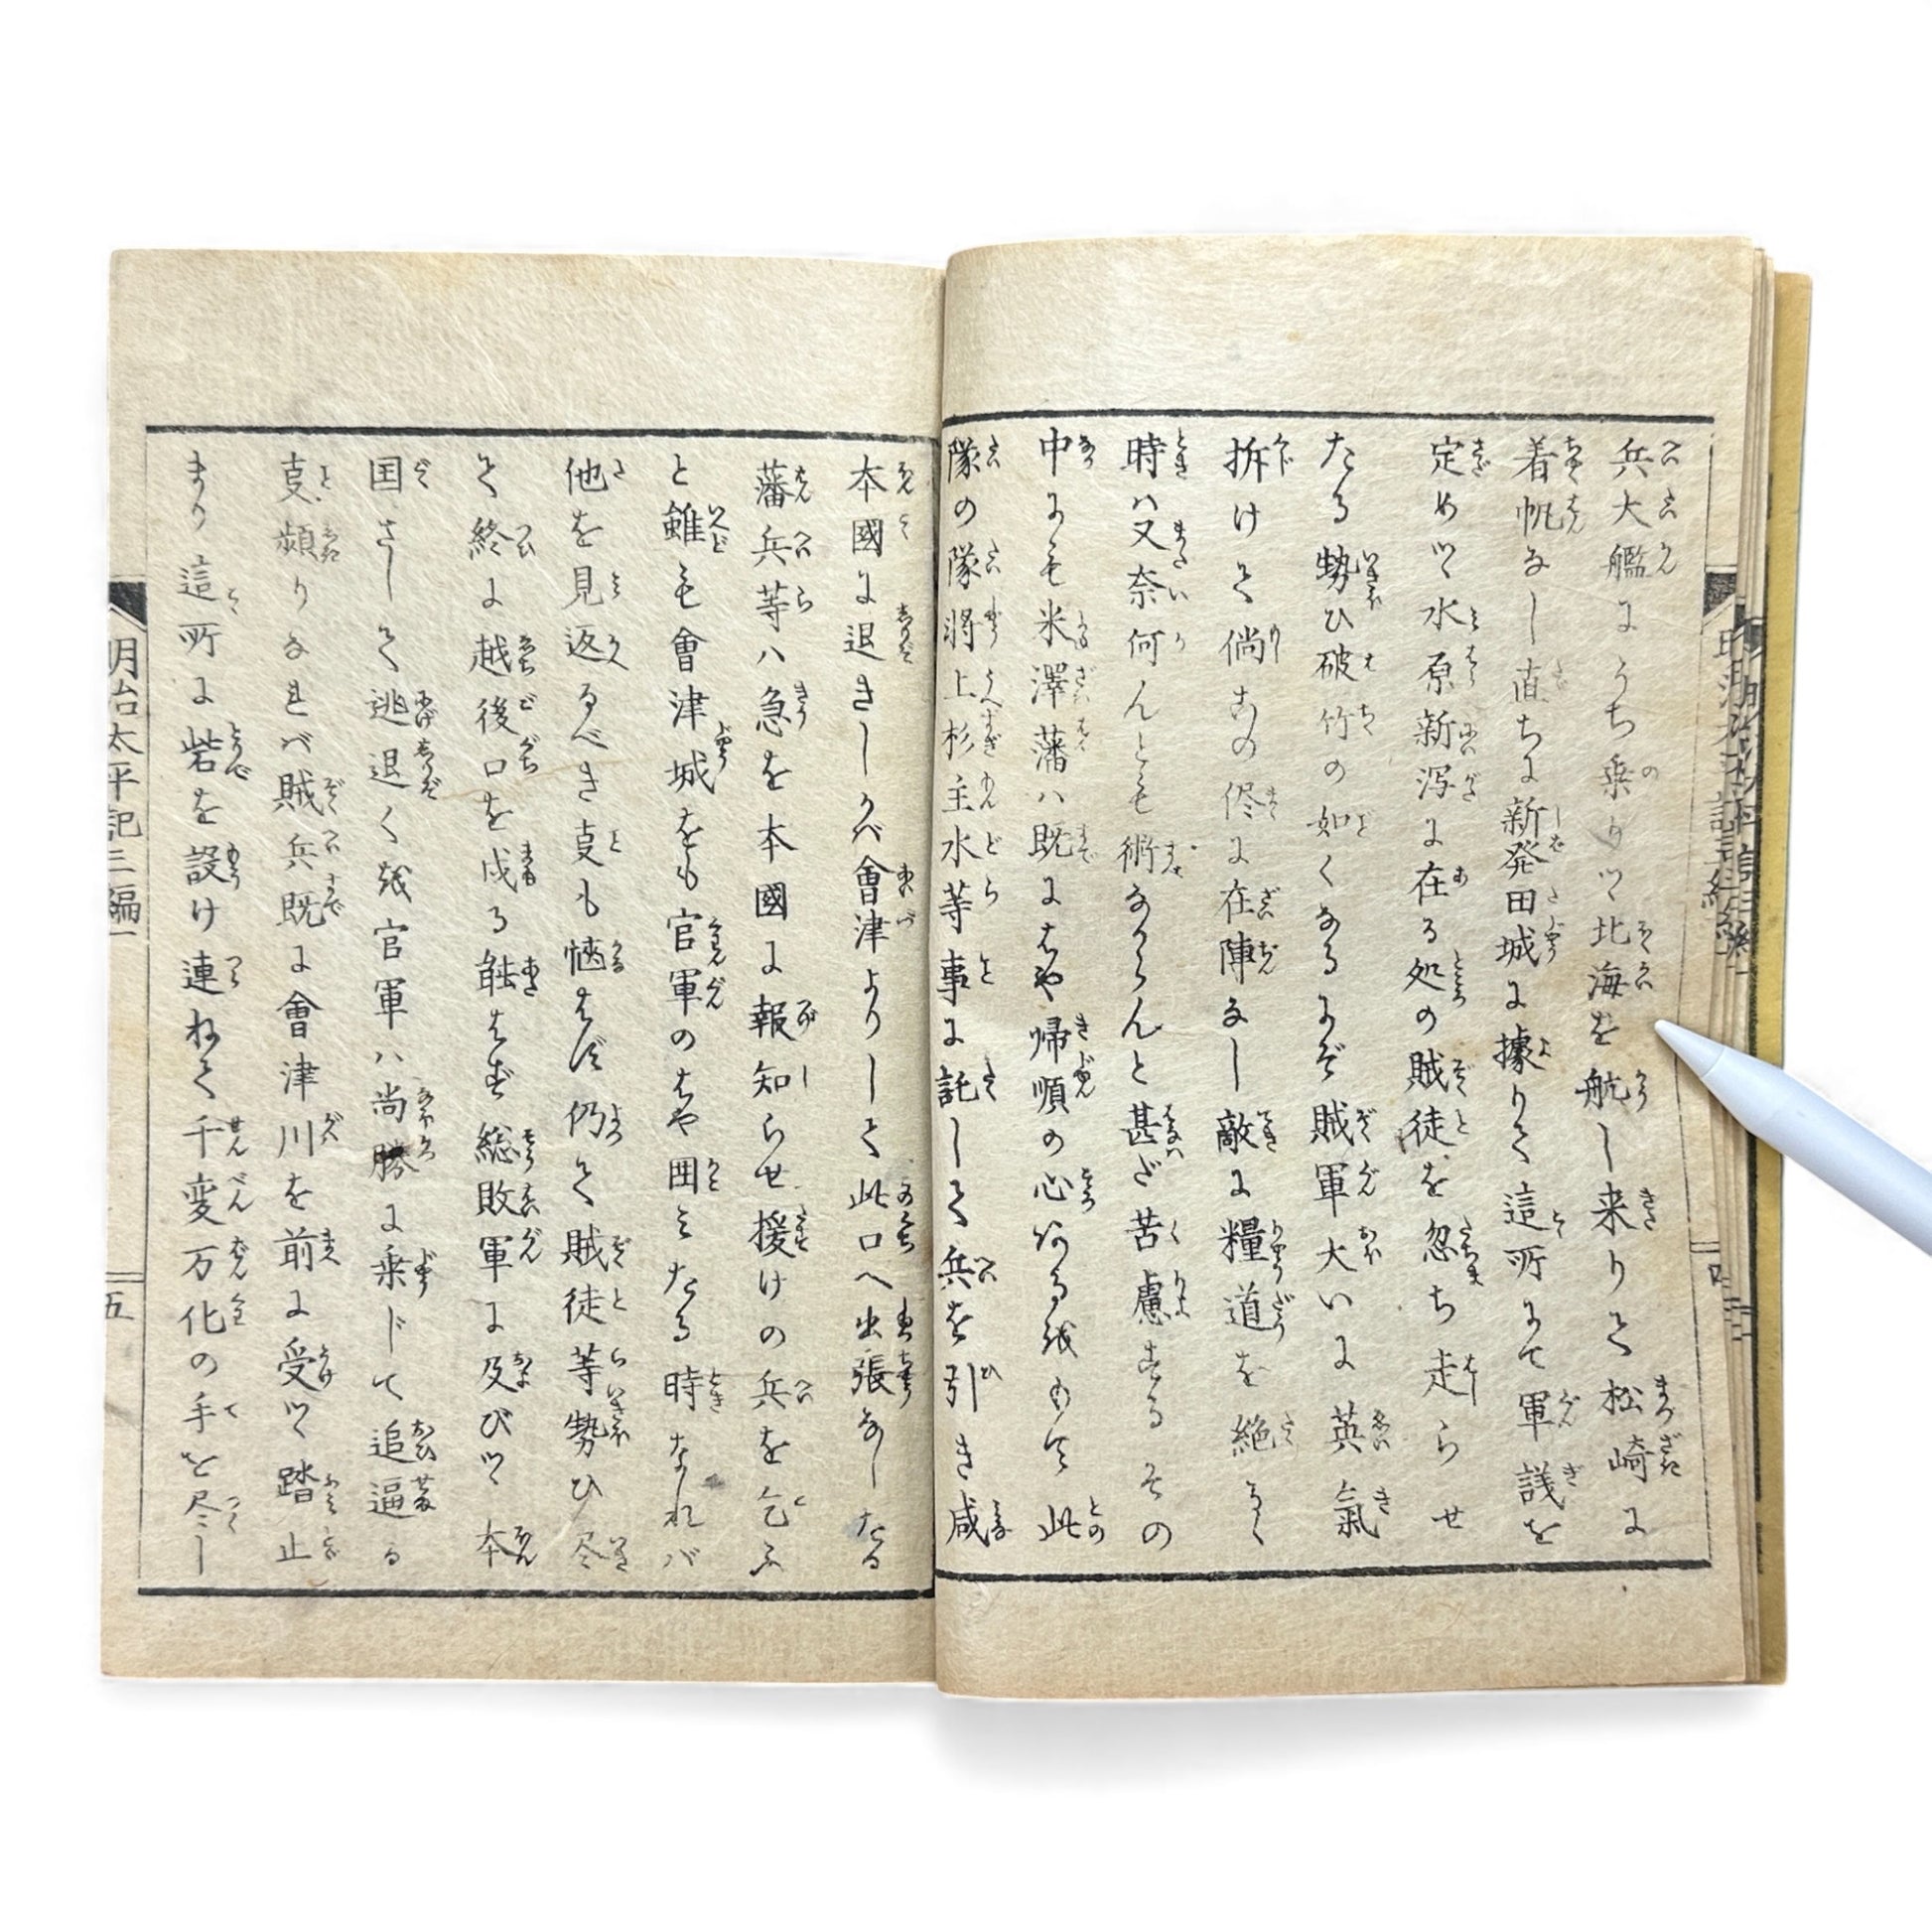 兵大艦にうち乗りツ北海を航し来りて松崎に
着帆なし直ちに新発田城に據りて這所にて軍議を
定めツ水原新潟に在る処の賊徒を忽ち走らせ
たる勢ひ破竹の如くなるにぞ賊軍大いに英氣
拆けて倘この侭に在陣なし敵に糧道を絶るゝ
時ハ又奈何んとも術なからんと甚だ苦慮する その
中にも米澤藩ハ既にはや帰順の心ある哉もて此
隊の隊將上杉主水等事に託して兵を引き咸
本國に退きしかバ會津よりして此口へ出張なしたる
藩兵等ハ急を本國に報知らせ援けの兵を乞ふ
と雖も會津城をも官軍のはや囲みたる時なれバ
他を見返るべき㕝も愜はず仍て賊徒等勢ひ尽
て終に越後口を戍る能はず総敗軍に及びツ本
国さして逃退く哉官軍ハ尚勝に乗じて追逼る
㕝頻りなれバ賊兵既に會津川を前に受ツ踏止
まり這所に砦を設け連ねて千変万化の手を尽し
明治太平記三編
五